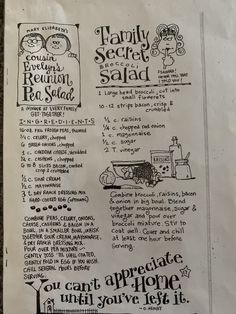 MARY ELIZABETH'S
cousin
Evelyn's
Reunion
Pea Salad
A WINNER AT EVERY FAMILY
GET-TOGETHER!
INGREDIENTS
16-OZ. FULL FROZEN PEAS, THAWED
CELERY, CHOPPED
GREEN ONIONS, CHOPPED
CHEESE, SHREDDED
CASHEWS, CHOPPED
SLICES BACON, COOKED
CRISP & CRUMBLED
C. SOUR CREAM
C. MAYONNAISE
DRY RANCH DRESSING MIX
HARD-COOKED EGG (OPTIONAL)
COMBINE PEAS, CELERY, ONIONS,
CHEESE, CASHEWS & BACON IN A
BOWL. IN A SMALLER BOWL, WHISK
TOGETHER SOUR CREAM, MAYONNAISE,
& DRY RANCH DRESSING MIX.
POUR OVER PEA MIXTURE —
GENTLY TOSS TIL WELL COATED.
GENTLY FOLD IN EGG IF YOU WISH.
CHILL SEVERAL HOURS BEFORE
SERVING.
Family
Secret
BROCCOLI
Salad
1 large head broccoli, cut into
small flowerets
10-12 strips bacon, crisp &
crumbled
½ c. raisins
¼ c. chopped red onion
c. mayonnaise
½ c. sugar
2 T. vinegar
Combine broccoli, raisins, bacon
and onion in big bowl. Blend
together mayonnaise, sugar &
vinegar and pour over
broccoli mixture. Stir to
coat well. Cover and chill
at least one hour before
serving.
you can't appreciate
Home
until you've left it.
- O. HENRY